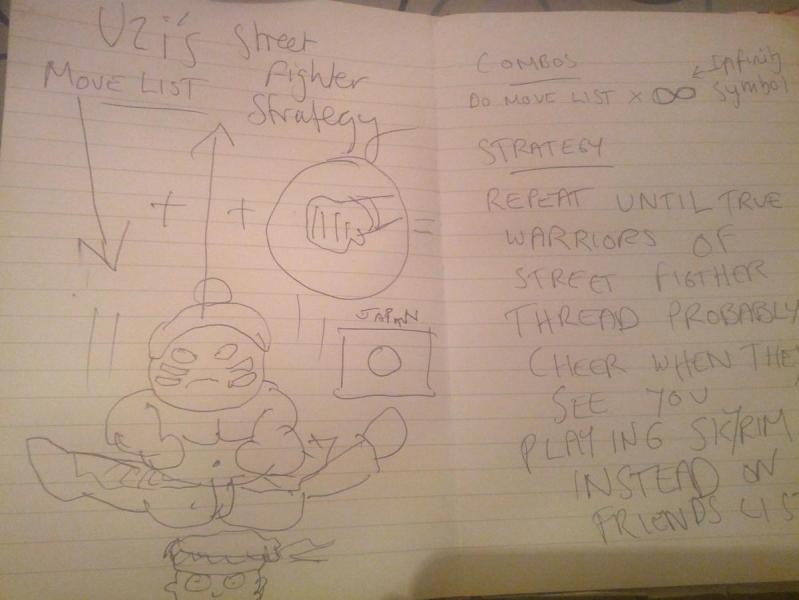 Uzi's Street
Fighter
Strategy
MOVE LIST
+
+
=
JAPAN
COMBOS
Infinity
Symbol
DO MOVE LIST X ∞
STRATEGY
REPEAT UNTIL TRUE
WARRIORS OF
STREET FIGTHER
THREAD PROBABLY
CHEER WHEN THE
SEE YOU
PLAYING SKYRIM
INSTEAD ON
FRIENDS LIST